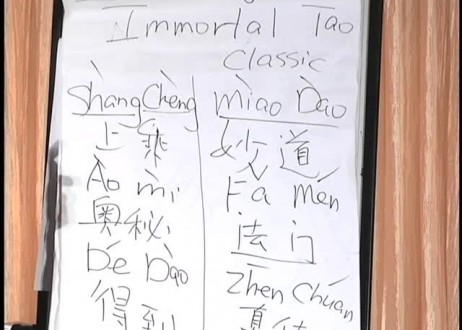 Immortal Tao
Classic
Shàng Chèng
上乘
Ào mì
奥秘
Dé Dào
得到
Miào Dào
妙道
Fa mén
法门
Zhēn Chuán
真传